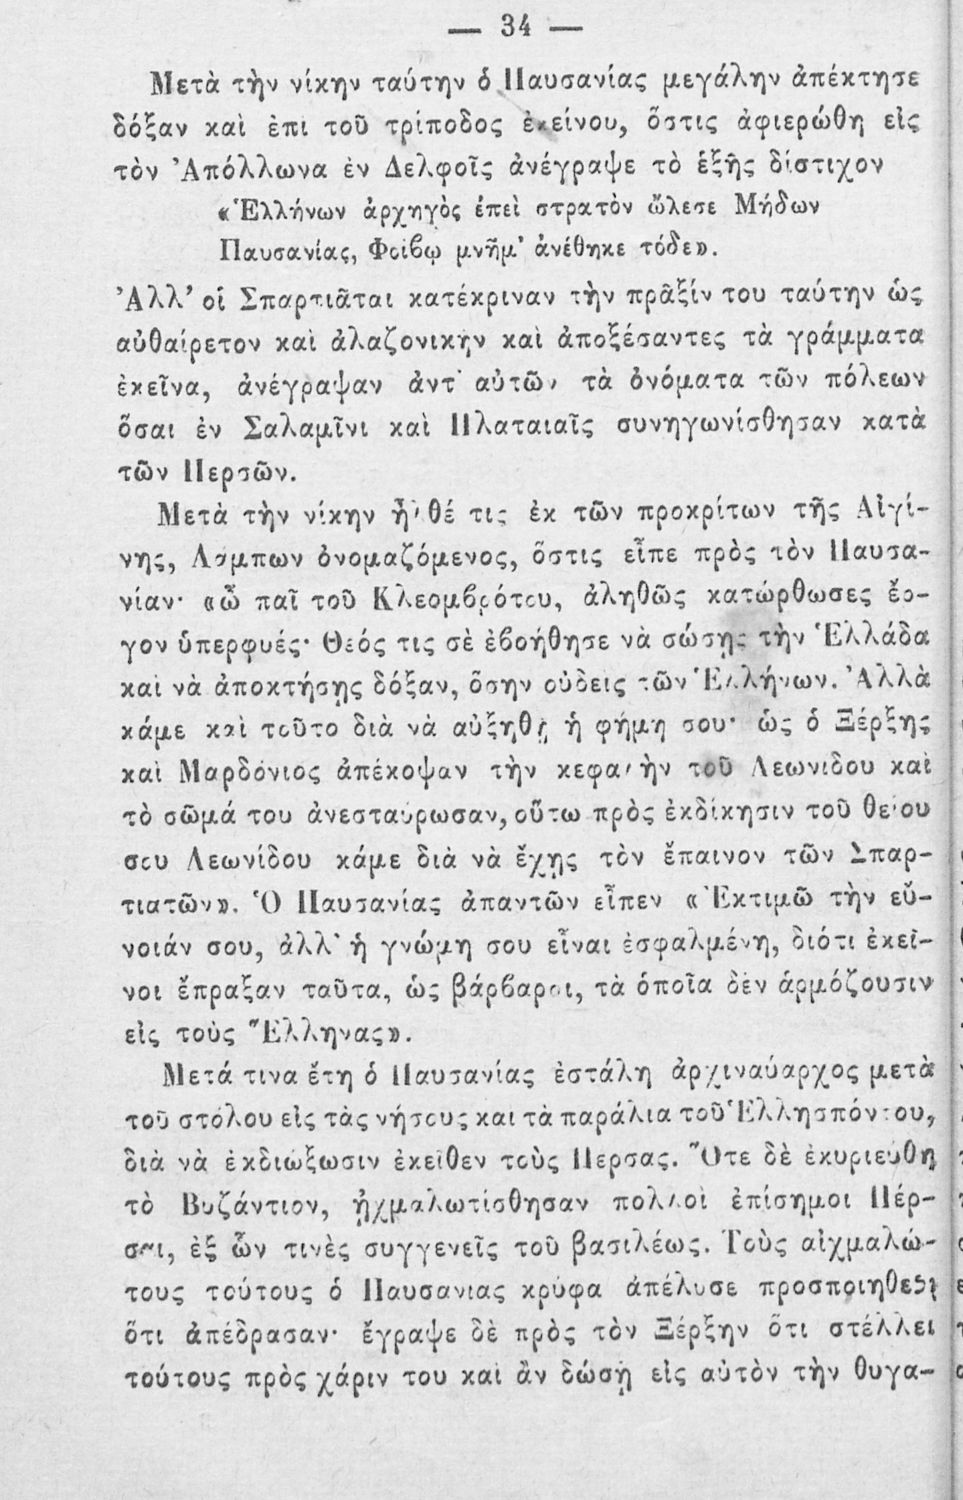 — 34 —
Μετὰ τὴν νίκην ταύτην ὁ Παυσανίας μεγάλην ἀπέκτησε
δόξαν καὶ ἐπὶ τοῦ τρίποδος ἐκείνου, ὅστις ἀφιερώθη εἰς
τὸν Ἀπόλλωνα ἐν Δελφοῖς ἀνέγραψε τὸ ἑξῆς δίστιχον
«Ἑλλήνων ἀρχηγὸς ἐπεὶ στρατὸν ὤλεσε Μήδων
Παυσανίας, Φοίβῳ μνῆμ' ἀνέθηκε τόδε».
Ἀλλ' οἱ Σπαρτιᾶται κατέκριναν τὴν πρᾶξίν του ταύτην ὡς
αὐθαίρετον καὶ ἀλαζονικὴν καὶ ἀποξέσαντες τὰ γράμματα
ἐκεῖνα, ἀνέγραψαν ἀντ' αὐτῶν τὰ ὀνόματα τῶν πόλεων
ὅσαι ἐν Σαλαμῖνι καὶ Πλαταιαῖς συνηγωνίσθησαν κατὰ
τῶν Περσῶν.
Μετὰ τὴν νίκην ἦλθέ τις ἐκ τῶν προκρίτων τῆς Αἰγί-
νης, Λάμπων ὀνομαζόμενος, ὅστις εἶπε πρὸς τὸν Παυσα-
νίαν· «ὦ παῖ τοῦ Κλεομβρότου, ἀληθῶς κατώρθωσες ἔρ-
γον ὑπερφυές· Θεός τις σὲ ἐβοήθησε νὰ σώσῃς τὴν Ἑλλάδα
καὶ νὰ ἀποκτήσῃς δόξαν, ὅσην οὐδεὶς τῶν Ἑλλήνων. Ἀλλὰ
κάμε καὶ τοῦτο διὰ νὰ αὐξηθῇ ἡ φήμη σου· ὡς ὁ Ξέρξης
καὶ Μαρδόνιος ἀπέκοψαν τὴν κεφαλὴν τοῦ Λεωνίδου καὶ
τὸ σῶμά του ἀνεσταύρωσαν, οὕτω πρὸς ἐκδίκησιν τοῦ θείου
σου Λεωνίδου κάμε διὰ νὰ ἔχῃς τὸν ἔπαινον τῶν Σπαρ-
τιατῶν». Ὁ Παυσανίας ἀπαντῶν εἶπεν «Ἐκτιμῶ τὴν εὔ-
νοιάν σου, ἀλλ' ἡ γνώμη σου εἶναι ἐσφαλμένη, διότι ἐκεῖ-
νοι ἔπραξαν ταῦτα, ὡς βάρβαροι, τὰ ὁποῖα δὲν ἁρμόζουσιν
εἰς τοὺς Ἕλληνας».
Μετά τινα ἔτη ὁ Παυσανίας ἐστάλη ἀρχιναύαρχος μετὰ
τοῦ στόλου εἰς τὰς νήσους καὶ τὰ παράλια τοῦ Ἑλλησπόντου,
διὰ νὰ ἐκδιώξωσιν ἐκεῖθεν τοὺς Πέρσας. Ὅτε δὲ ἐκυριεύθη
τὸ Βυζάντιον, ᾐχμαλωτίσθησαν πολλοὶ ἐπίσημοι Πέρ-
σαι, ἐξ ὧν τινὲς συγγενεῖς τοῦ βασιλέως. Τοὺς αἰχμαλώ-
τους τούτους ὁ Παυσανίας κρύφα ἀπέλυσε προσποιηθεὶς
ὅτι ἀπέδρασαν· ἔγραψε δὲ πρὸς τὸν Ξέρξην ὅτι στέλλει
τούτους πρὸς χάριν του καὶ ἂν δώσῃ εἰς αὐτὸν τὴν θυγα-